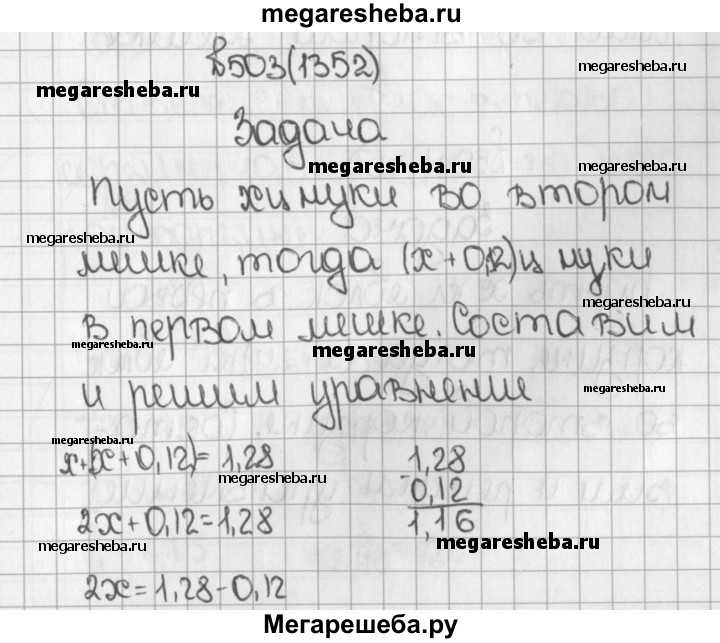 megaresheba.ru
№503(1352)
megaresheba.ru
megaresheba.ru
Задача
megaresheba.ru
megaresheba.ru
Пусть x ц муки во втором
megaresheba.ru
мешке, тогда (x + 0,12) ц муки
megaresheba.ru
в первом мешке. Составим
megaresheba.ru
megaresheba.ru
и решим уравнение
megaresheba.ru
megaresheba.ru
x+(x+0,12)=1,28
1,28
megaresheba.ru
-0,12
2x+0,12=1,28
1,16
megaresheba.ru
megaresheba.ru
2x=1,28-0,12
Мегарешеба.ру